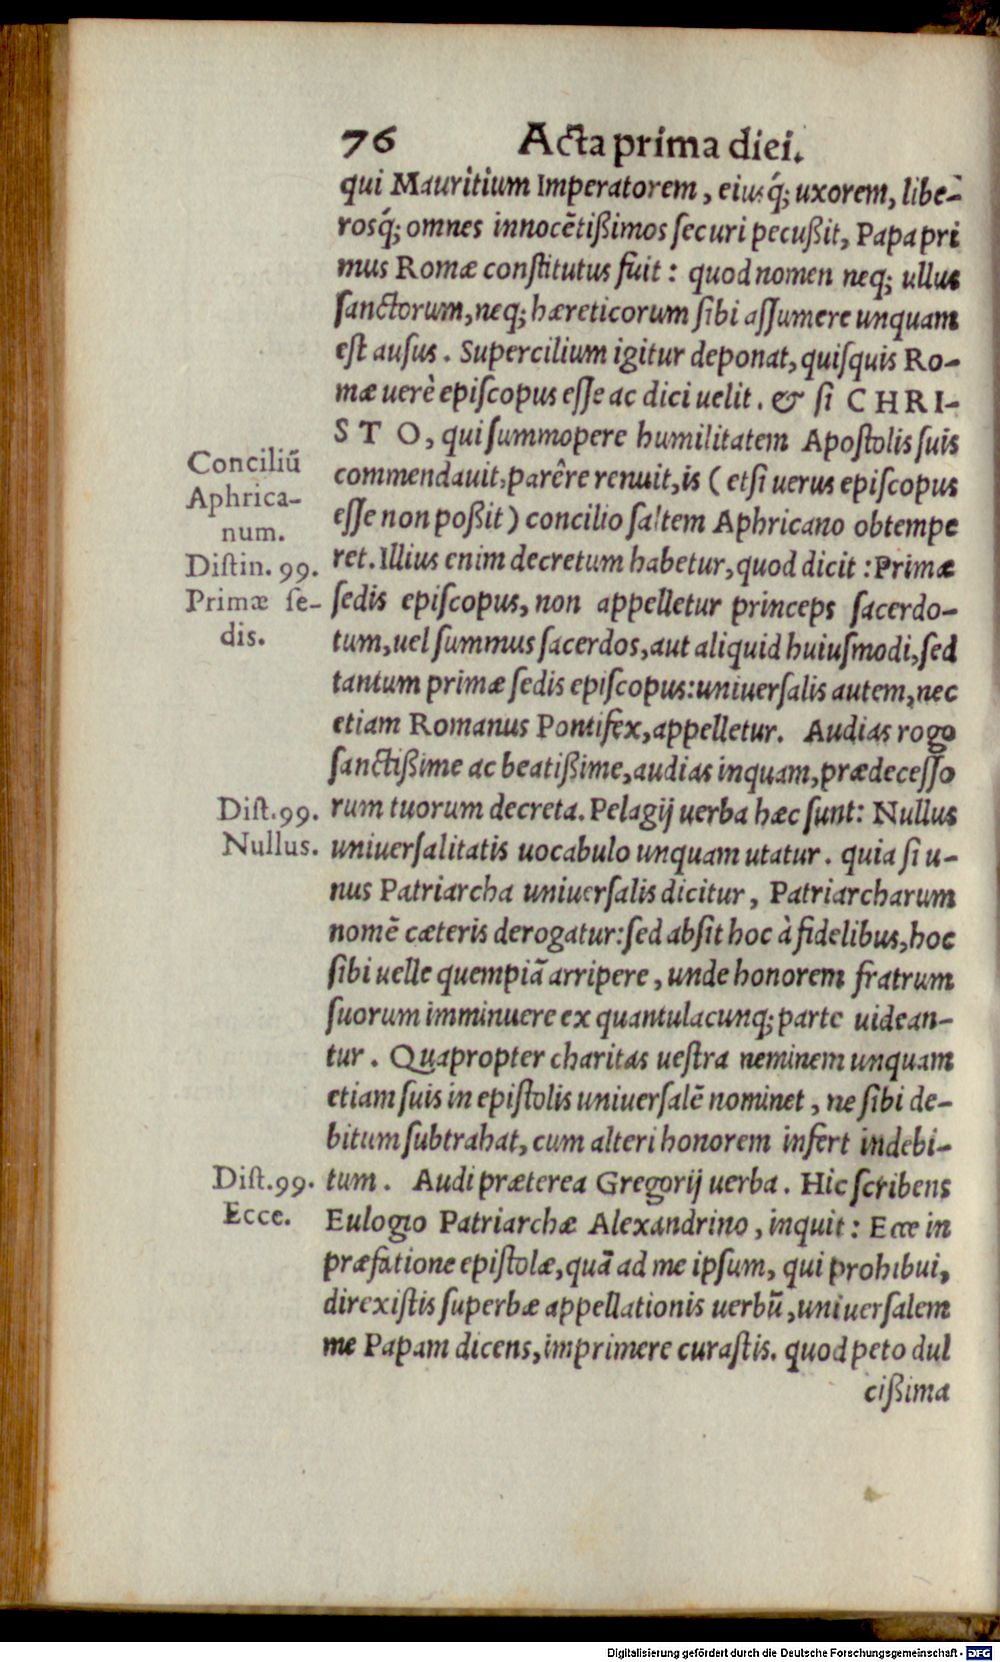 76 Acta prima diei.
qui Mauritium Imperatorem, eiusq́; uxorem, libe-
rosq́; omnes innocẽtißimos securi pecußit, Papa pri
mus Romæ constitutus fuit: quod nomen neq; ullus
sanctorum, neq; hæreticorum sibi assumere unquam
est ausus. Supercilium igitur deponat, quisquis Ro-
mæ uerè episcopus esse ac dici uelit. & si CHRI-
STO, qui summopere humilitatem Apostolis suis
commendauit, parêre renuit, is (etsi uerus episcopus
esse non poßit) concilio saltem Aphricano obtempe
ret. Illius enim decretum habetur, quod dicit: Primæ
sedis episcopus, non appelletur princeps sacerdo-
tum, uel summus sacerdos, aut aliquid huiusmodi, sed
tantum primæ sedis episcopus: uniuersalis autem, nec
etiam Romanus Pontifex, appelletur. Audias rogo
sanctißime ac beatißime, audias inquam, prædecesso
rum tuorum decreta. Pelagij uerba hæc sunt: Nullus
uniuersalitatis uocabulo unquam utatur. quia si u-
nus Patriarcha uniuersalis dicitur, Patriarcharum
nomẽ cæteris derogatur: sed absit hoc à fidelibus, hoc
sibi uelle quempiã arripere, unde honorem fratrum
suorum imminuere ex quantulacunq; parte uidean-
tur. Quapropter charitas uestra neminem unquam
etiam suis in epistolis uniuersalẽ nominet, ne sibi de-
bitum subtrahat, cum alteri honorem infert indebi-
tum. Audi præterea Gregorij uerba. Hic scribens
Eulogio Patriarchæ Alexandrino, inquit: Ecce in
præfatione epistolæ, quã ad me ipsum, qui prohibui,
direxistis superbæ appellationis uerbũ, uniuersalem
me Papam dicens, imprimere curastis. quod peto dul
cißima
Conciliũ
Aphrica-
num.
Distin. 99.
Primæ se-
dis.
Dist. 99.
Nullus.
Dist. 99.
Ecce.
Digitalisierung gefördert durch die Deutsche Forschungsgemeinschaft - DFG